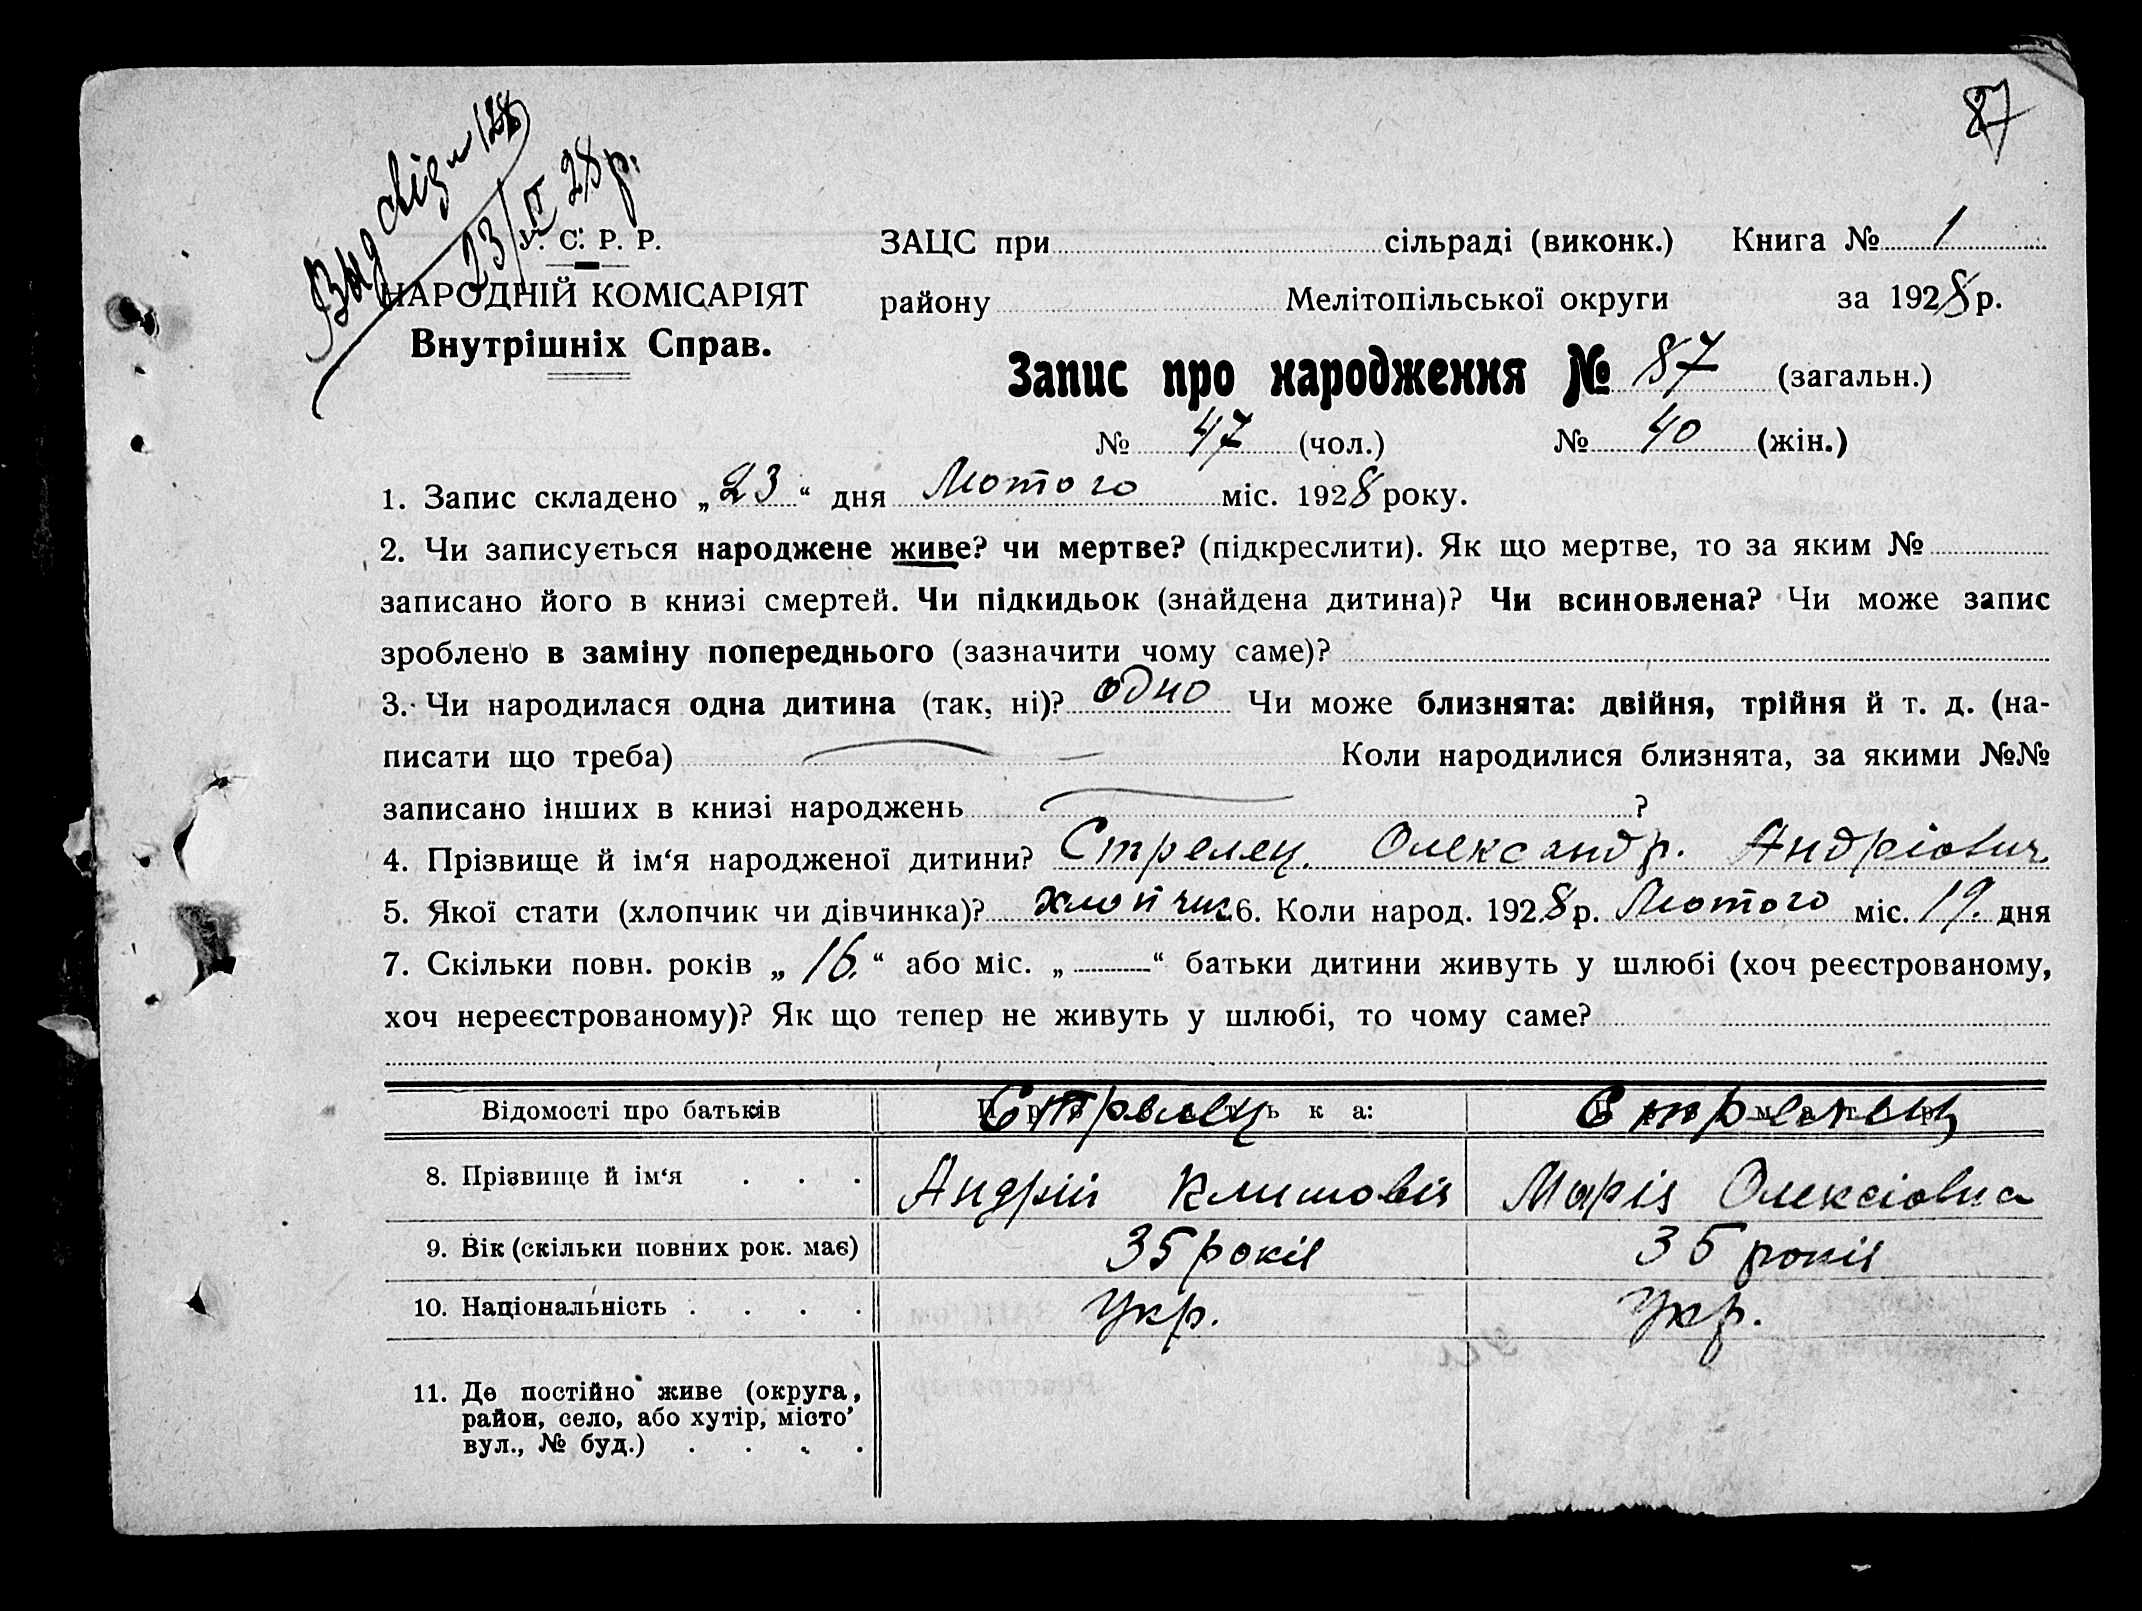 87
23/II 28 р.
У. С. Р. Р.
НАРОДНІЙ КОМІСАРІЯТ
Внутрішніх Справ.
ЗАЦС при сільраді (виконк.) Книга № 1
району Мелітопільської округи за 1928 р.
Запис про народження № 87 (загальн.)
№ 47 (чол.) № 40 (жін.)
1. Запис складено „23“ дня Лютого міс. 1928 року.
2. Чи записується народжене живе? чи мертве? (підкреслити). Як що мертве, то за яким №
записано його в книзі смертей. Чи підкидьок (знайдена дитина)? Чи всиновлена? Чи може запис
зроблено в заміну попереднього (зазначити чому саме)?
3. Чи народилася одна дитина (так, ні)? одно Чи може близнята: двійня, трійня й т. д. (на-
писати що треба) Коли народилися близнята, за якими №№
записано інших в книзі народжень ?
4. Прізвище й ім‘я народженої дитини? Стрелец Олександр. Андріович
5. Якої стати (хлопчик чи дівчинка)? хлопчик 6. Коли народ. 1928 р. Лютого міс. 19. дня
7. Скільки повн. років „16.“ або міс. „ “ батьки дитини живуть у шлюбі (хоч реєстрованому,
хоч нереєстрованому)? Як що тепер не живуть у шлюбі, то чому саме?
Відомості про батьків Про батька: Про матір
Стрелец Стрелец
8. Прізвище й ім‘я . . . Андрій Климовіч Марія Олексіовна
9. Вік (скільки повних рок. має) 35 років 35 років
10. Національність . . . . Укр. Укр.
11. Де постійно живе (округа,
район, село, або хутір, місто
вул., № буд.) . . . .